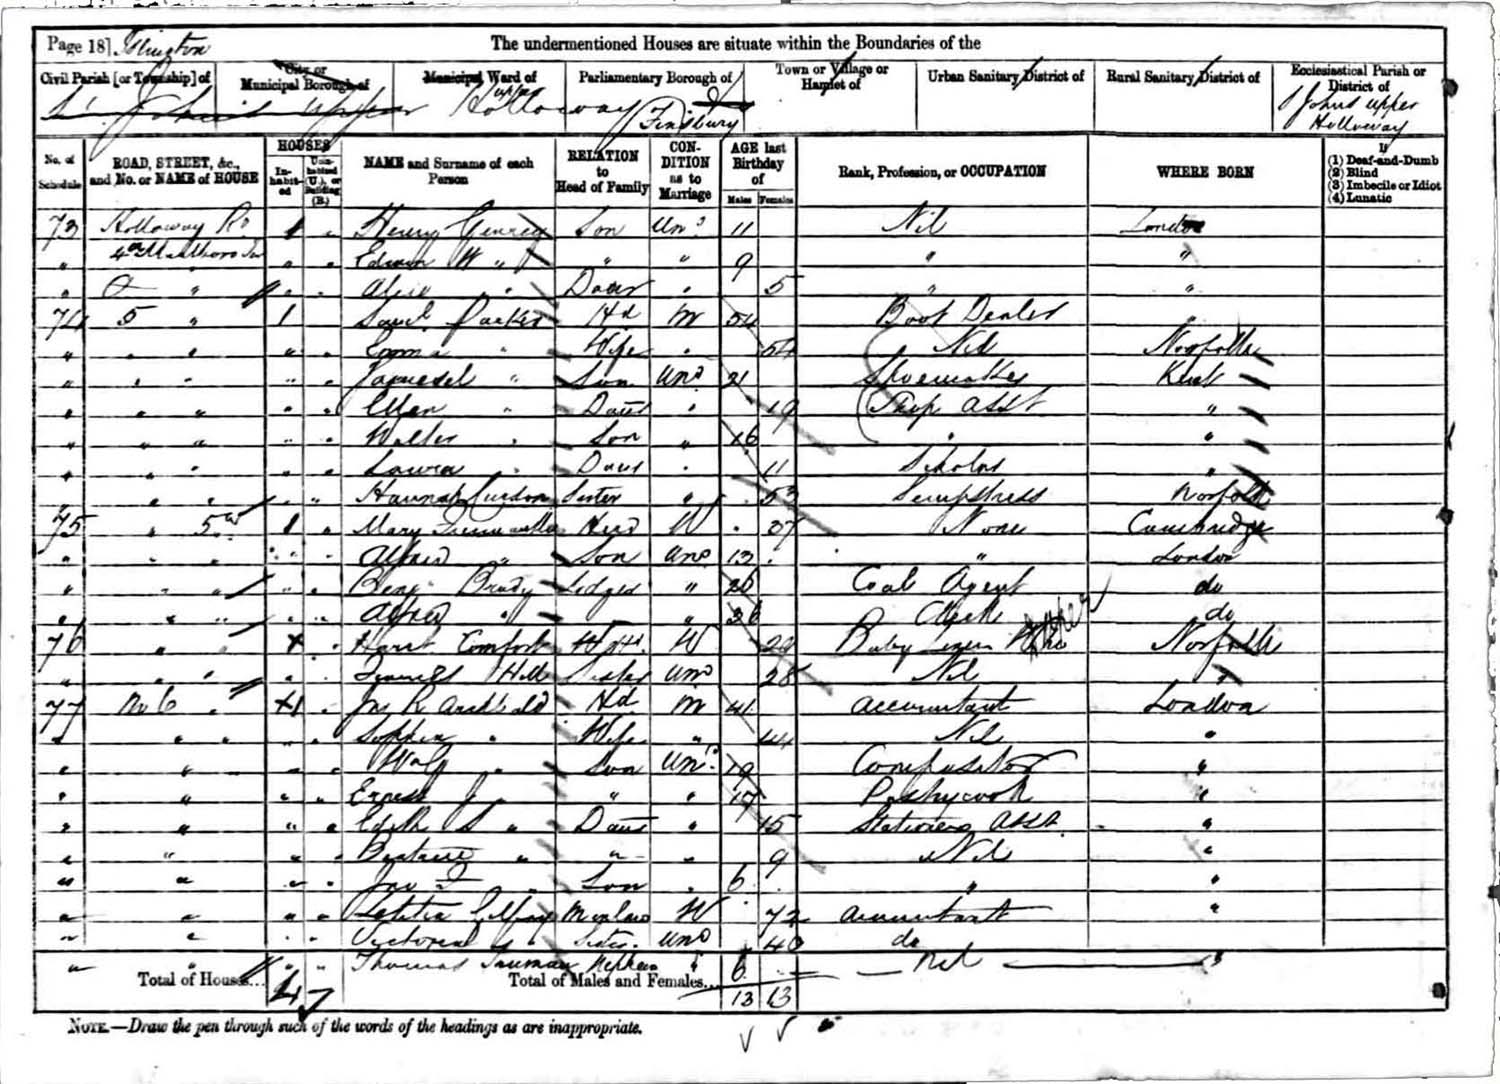 Page 18] Islington The undermentioned Houses are situate within the Boundaries of the
Civil Parish [or Township] of City or Municipal Borough of Municipal Ward of Parliamentary Borough of Town or Village or Hamlet of Urban Sanitary District of Rural Sanitary District of Ecclesiastical Parish or District of
Upper Holloway Finsbury St Johns Upper Holloway
No. of Schedule ROAD, STREET, &c., and No. or NAME of HOUSE HOUSES Inhabited Uninhabited (U.), or Building (B.) NAME and Surname of each Person RELATION to Head of Family CONDITION as to Marriage AGE last Birthday of Males Females Rank, Profession, or OCCUPATION WHERE BORN If (1) Deaf-and-Dumb (2) Blind (3) Imbecile or Idiot (4) Lunatic
73 Holloway Rd 1 " Henry Son Unm 11 Nil London
" 4a " " Edwin W " " " 9 " "
" " " " Alice " Daur " 5 " "
74 5 " 1 Saml Parker Hd M 54 Boot Dealer "
" " " " " Emma " Wife " 54 Nil Norfolk
" " " " " " Son Unm 21 Shoemaker Kent
" " " " " Ellen " Daur " 19 Shop Asst "
" " " " " Walter " Son " 16 " "
" " " " " Laura " Daur " 11 Scholar "
" " " " " Hannah Sister " 53 Sempstress Norfolk
75 " 5a 1 " Mary Head W " 37 None Cambridge
" " " " " Alfred " Son Unm 13 " " London
" " " " " Benj Brady Lodger " 26 Coal Agent do
" " " " " Alfred " " " 26 Clerk do
76 " " X " Harrt Comfort W 29 Baby Linen Norfolk
" " " " " Hill Sister Unm 28 Nil "
77 No 6 " X1 " Jas R Archbald Hd M 41 Accountant London
" " " " " Sophia " Wife " 44 Nil "
" " " " Son Unm 19 Compositor "
" " " " Ernest J " " " 17 Pastrycook "
" " " " Edith S " Daur " 15 Stationers Asst "
" " " " Beatrice " " " 9 Nil "
" " " " Jas " Son " 6 " "
" " " " Letitia W 72 Accountant "
" " " " Victoria " Sister Unm 40 do
" " " " Thomas Truman Nephew " 6 Nil "
Total of Houses... 4 Total of Males and Females... 13 13
NOTE.—Draw the pen through such of the words of the headings as are inappropriate.